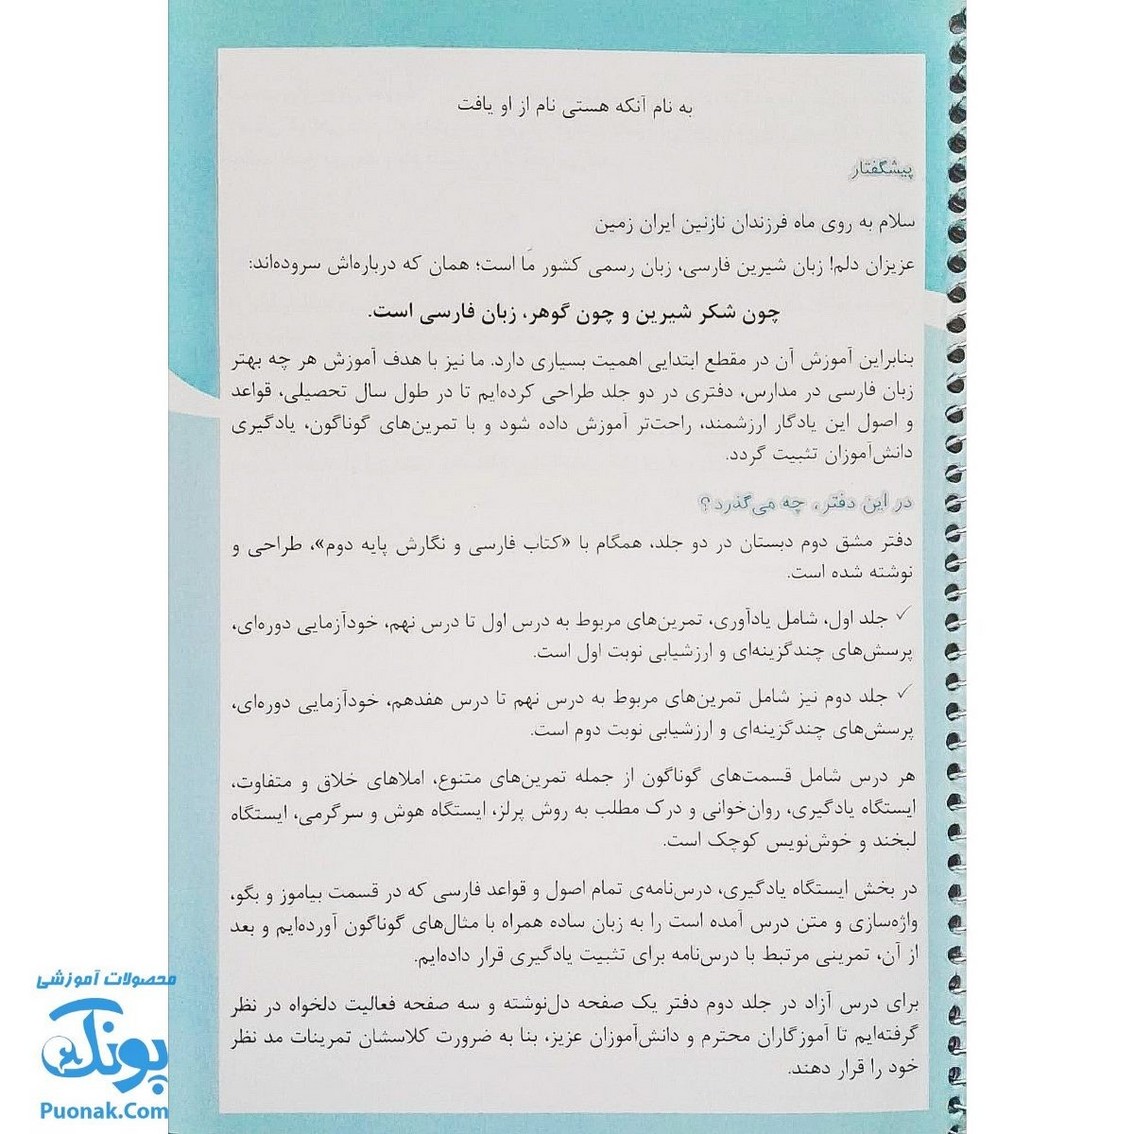 به نام آنکه هستی نام از او یافت
پیشگفتار
سلام به روی ماه فرزندان نازنین ایران زمین
عزیزان دلم! زبان شیرین فارسی، زبان رسمی کشور ما است؛ همان که درباره‌اش سروده‌اند:
چون شکر شیرین و چون گوهر، زبان فارسی است.
بنابراین آموزش آن در مقطع ابتدایی اهمیت بسیاری دارد. ما نیز با هدف آموزش هر چه بهتر
زبان فارسی در مدارس، دفتری در دو جلد طراحی کرده‌ایم تا در طول سال تحصیلی، قواعد
و اصول این یادگار ارزشمند، راحت‌تر آموزش داده شود و با تمرین‌های گوناگون، یادگیری
دانش‌آموزان تثبیت گردد.
در این دفتر، چه می‌گذرد؟
دفتر مشق دوم دبستان در دو جلد، همگام با «کتاب فارسی و نگارش پایه دوم»، طراحی و
نوشته شده است.
✓ جلد اول، شامل یادآوری، تمرین‌های مربوط به درس اول تا درس نهم، خودآزمایی دوره‌ای،
پرسش‌های چندگزینه‌ای و ارزشیابی نوبت اول است.
✓ جلد دوم نیز شامل تمرین‌های مربوط به درس نهم تا درس هفدهم، خودآزمایی دوره‌ای،
پرسش‌های چندگزینه‌ای و ارزشیابی نوبت دوم است.
هر درس شامل قسمت‌های گوناگون از جمله تمرین‌های متنوع، املاهای خلاق و متفاوت،
ایستگاه یادگیری، روان‌خوانی و درک مطلب به روش پرلز، ایستگاه هوش و سرگرمی، ایستگاه
لبخند و خوش‌نویس کوچک است.
در بخش ایستگاه یادگیری، درس‌نامه‌ی تمام اصول و قواعد فارسی که در قسمت بیاموز و بگو،
واژه‌سازی و متن درس آمده است را به زبان ساده همراه با مثال‌های گوناگون آورده‌ایم و بعد
از آن، تمرینی مرتبط با درس‌نامه برای تثبیت یادگیری قرار داده‌ایم.
برای درس آزاد در جلد دوم دفتر یک صفحه دل‌نوشته و سه صفحه فعالیت دلخواه در نظر
گرفته‌ایم تا آموزگاران محترم و دانش‌آموزان عزیز، بنا به ضرورت کلاسشان تمرینات مد نظر
خود را قرار دهند.
محصولات آموزشی
پونک
Puonak.Com